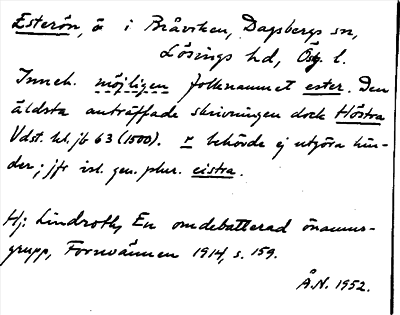 Esterön, ö i Bråviken, Dagsbergs sn,
Lösings hd, Ög. l.
Inneh. möjligen folknamnet ester. Den
äldsta anträffade skrivningen dock Höstra
Vdst. kl. jb 63 (1500). r behövde ej utgöra hin-
der; jfr isl. gen. plur. eistra.
Hj. Lindroth, En omdebatterad önamns-
grupp, Fornvännen 1914, s. 159.
Å.N. 1952.